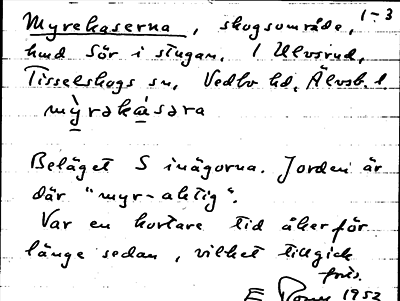 1-3
Myrekaserna, skogsområde,
hmd Sör i stugan, 1 Ulvsrud,
Tisselskogs sn, Vedbo hd, Älvsb. l.
mỳrəkásəra
Beläget S inägorna. Jorden är
där "myr-aktig".
Var en kortare tid åker för
länge sedan, vilket tillgick
förs.
E 1952